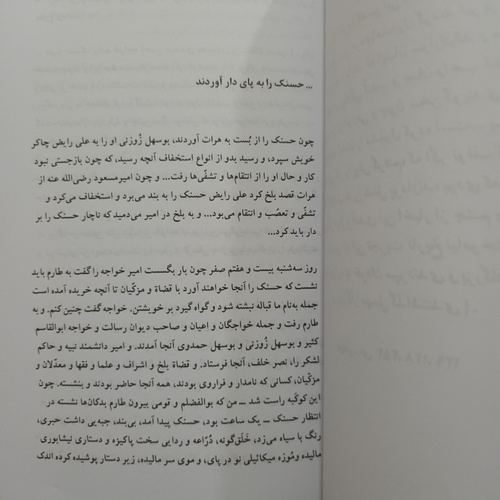 ... حسنک را به پای دار آوردند
چون حسنک را از بُست به هرات آوردند، بوسهل زَوزنی او را به علی رایض چاکر
خویش سپرد، و رسید بدو از انواع استخفاف آنچه رسید، که چون بازجستی نبود
کار و حال او را از انتقام‌ها و تشفّی‌ها رفت... و چون امیرمسعود رضی‌الله عنه از
هرات قصد بلخ کرد علی رایض حسنک را به بند می‌برد و استخفاف می‌کرد و
تشفّی و تعصّب و انتقام می‌بود... و به بلخ در امیر می‌دمید که ناچار حسنک را بر
دار باید کرد...
روز سه‌شنبه بیست و هفتم صفر چون بار بگسست امیر خواجه را گفت به طارم باید
نشست که حسنک را آنجا خواهند آورد با قضاة و مزکّیان تا آنچه خریده آمده است
جمله به‌نام ما قباله نبشته شود و گواه گیرد بر خویشتن. خواجه گفت چنین کنم. و به
طارم رفت و جمله خواجگان و اعیان و صاحب دیوان رسالت و خواجه ابوالقاسم
کثیر و بوسهل زَوزنی و بوسهل حمدوی آنجا آمدند. و امیر دانشمند نبیه و حاکم
لشکر را، نصر خلف، آنجا فرستاد. و قضاة بلخ و اشراف و علما و فقها و معدّلان و
مزکّیان، کسانی که نامدار و فراروی بودند، همه آنجا حاضر بودند و بنشسته. چون
این کوکبه راست شد ــ من که بوالفضلم و قومی بیرون طارم بدکان‌ها نشسته در
انتظار حسنک ــ یک ساعت بود، حسنک پیدا آمد، بی‌بند، جبه‌یی داشت حبری،
رنگ با سیاه می‌زد، خَلَق‌گونه، دُرّاعه و ردایی سخت پاکیزه و دستاری نیشابوری
مالیده و‌مُوزه میکائیلی نو در پای، و موی سر مالیده، زیر دستار پوشیده کرده اندک